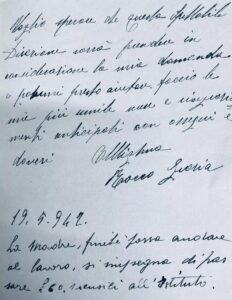 Voglio sperare che questa Spettabile
Direzione vorrà prendere in
considerazione la mia domanda
e potermi presto aiutare, faccio le
mie più umile scuse e ringrazia
menti anticipati con ossequi e
doveri
Rocco Gioria
19. 5. 942.
La madre, finché possa andare
al lavoro, si impegna di pas
sare £ 60. mensili all'Istituto.